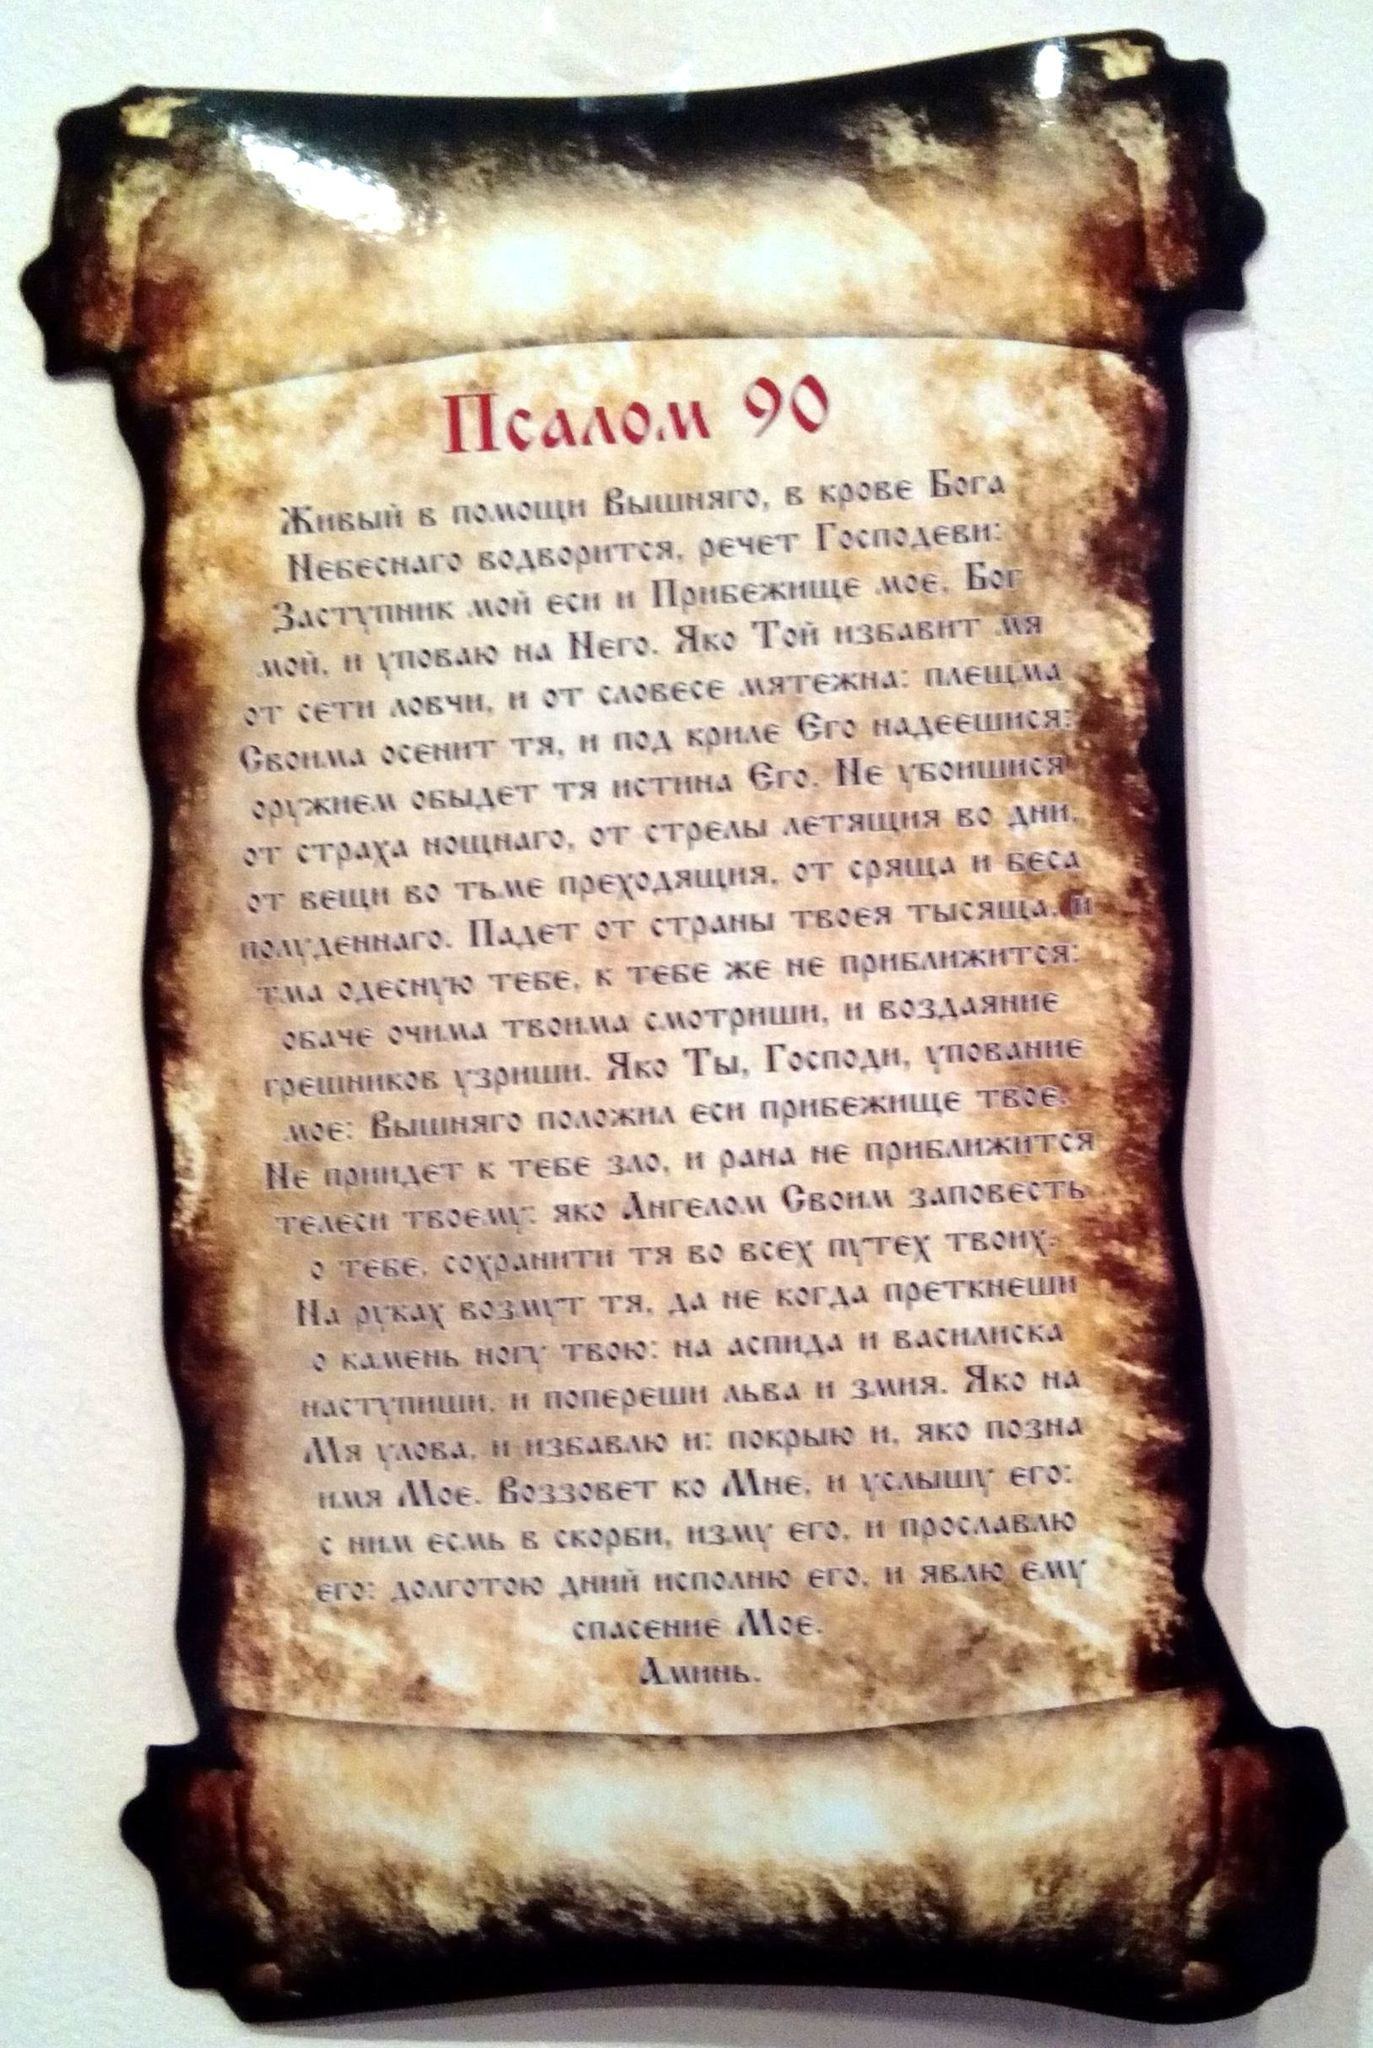 Псалом 90
Живый в помощи Вышняго, в крове Бога
Небеснаго водворится, речет Господеви:
Заступник мой еси и Прибежище мое, Бог
мой, и уповаю на Него. Яко Той избавит мя
от сети ловчи, и от словесе мятежна: плещма
Своима осенит тя, и под криле Его надеешися:
оружием обыдет тя истина Его. Не убоишися
от страха нощнаго, от стрелы летящия во дни,
от вещи во тьме преходящия, от сряща и беса
полуденнаго. Падет от страны твоея тысяща, и
тма одесную тебе, к тебе же не приближится:
обаче очима твоима смотриши, и воздаяние
грешников узриши. Яко Ты, Господи, упование
мое: Вышняго положил еси прибежище твое.
Не приидет к тебе зло, и рана не приближится
телеси твоему: яко Ангелом Своим заповесть
о тебе, сохранити тя во всех путех твоих.
На руках возмут тя, да не когда преткнеши
о камень ногу твою: на аспида и василиска
наступиши, и попереши льва и змия. Яко на
Мя упова, и избавлю и: покрыю и, яко позна
имя Мое. Воззовет ко Мне, и услышу его:
с ним есмь в скорби, изму его, и прославлю
его: долготою дний исполню его, и явлю ему
спасение Мое.
Аминь.